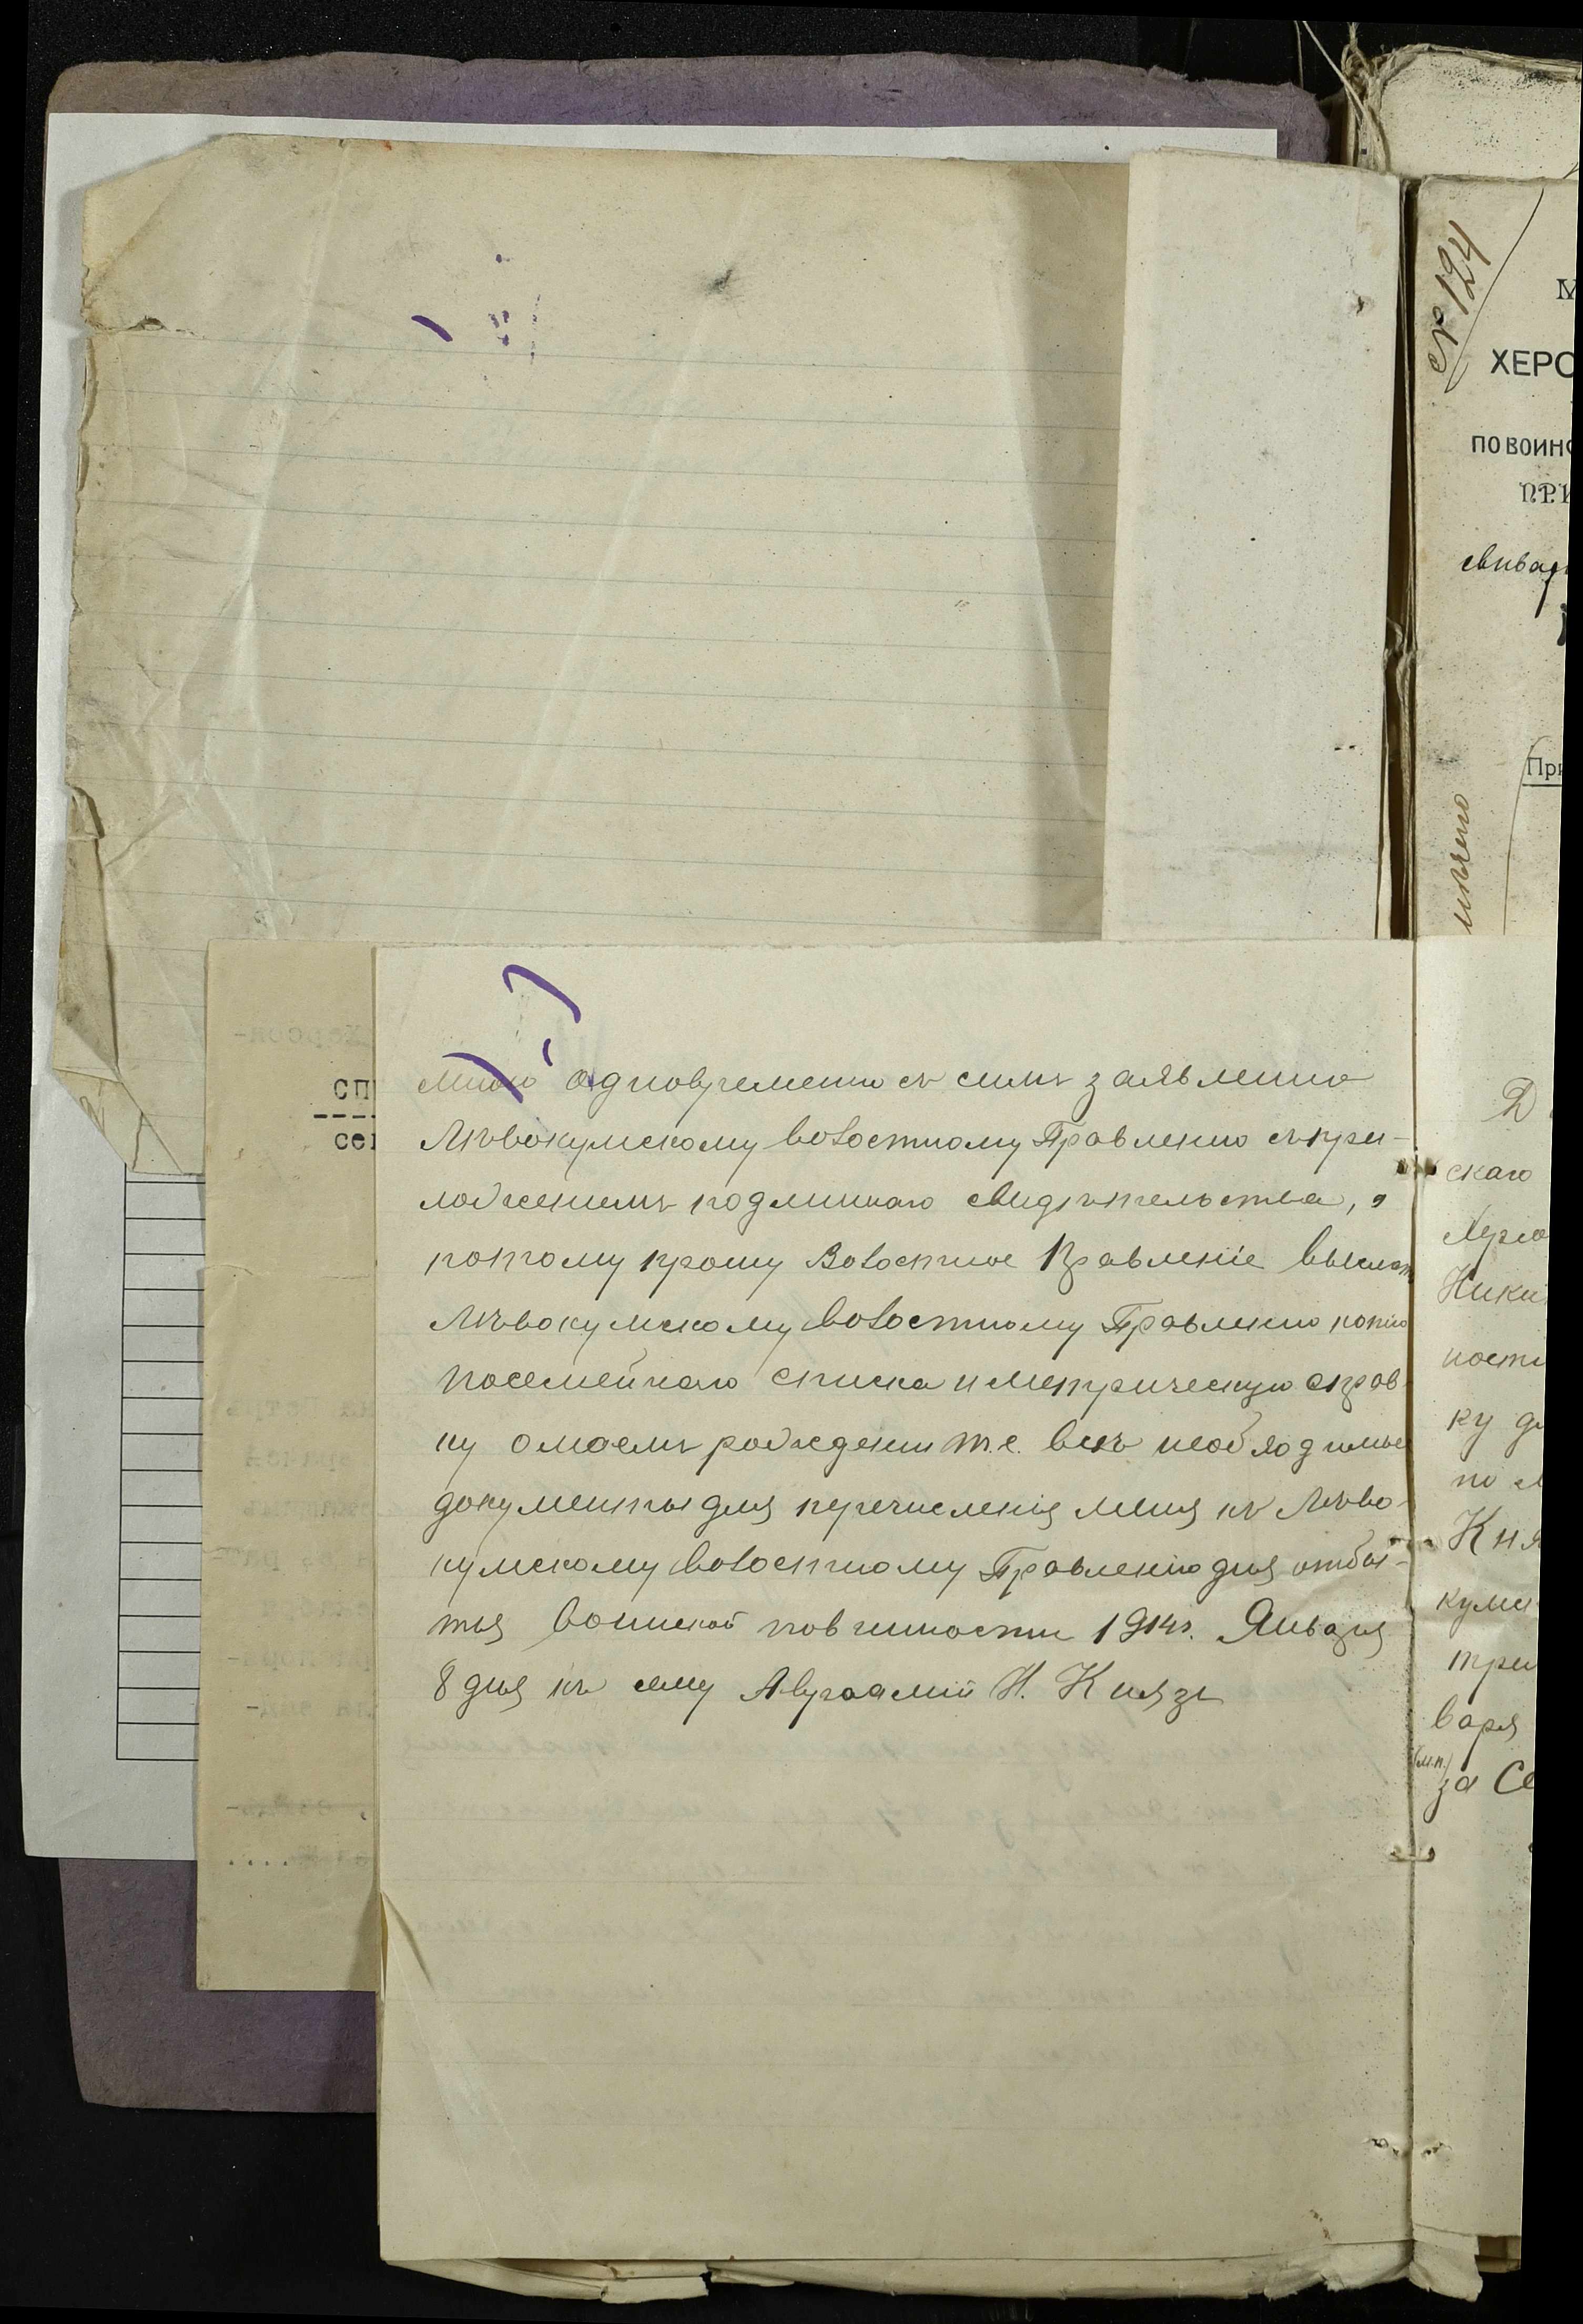 № 124
ХЕРС
ПО ВОИНС
ПРИ
При
сп
сен
мною одновременно съ симъ заявлено
Лѣвокумскому волостному Правленію съ при-
ложеніемъ подлиннаго свидѣтельства, а
потому прошу Волостное Правленіе выслать
Лѣвокумскому волостному Правленію копію
посемейнаго списка и метрическую справ
ку о моемъ рожденіи т.е. всѣ необходимые
документы для перечисленія меня къ Лѣво-
кумскому волостному Правленію для отбы-
тья воинской повинности 1914г. Января
8 дня къ сему Авраамій Н. Князь
Д
скаго
Херсо
Ники
ности
ку дл
по
Кня
кумс
три
варя
(м.п.)
за Се